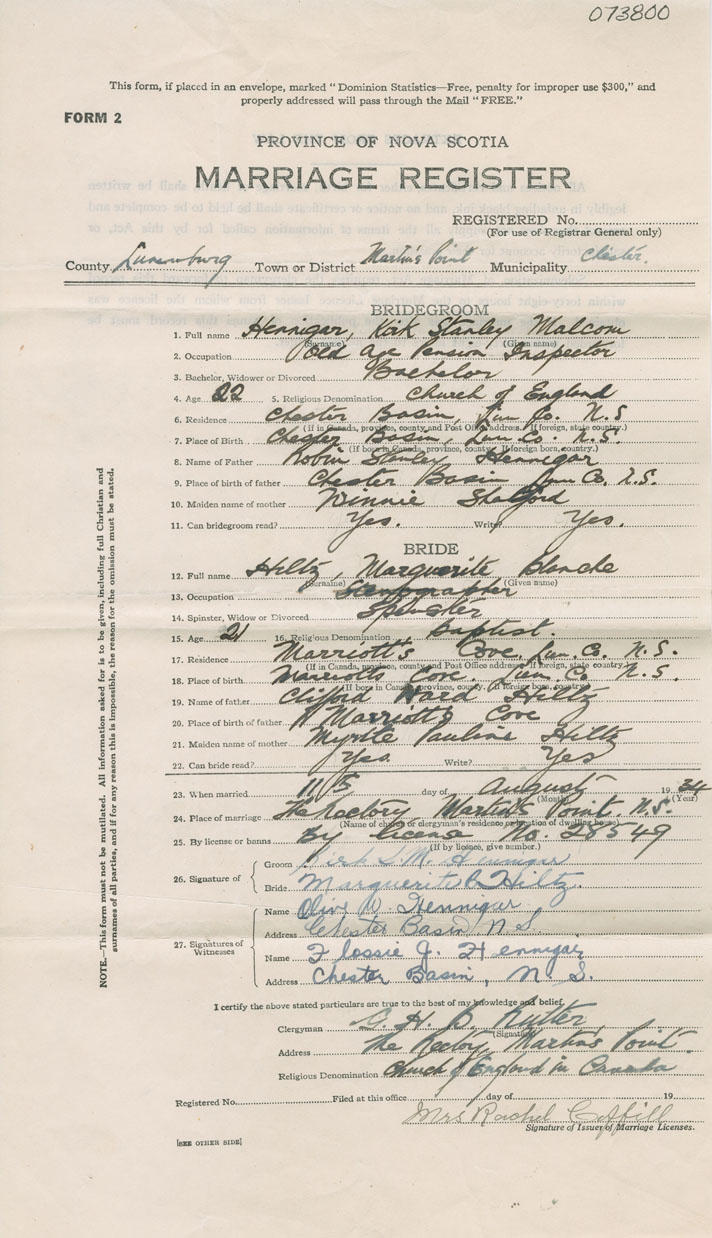 073800
This form, if placed in an envelope, marked "Dominion Statistics—Free, penalty for improper use $300," and
properly addressed will pass through the Mail "FREE."
FORM 2
PROVINCE OF NOVA SCOTIA
MARRIAGE REGISTER
REGISTERED No.
(For use of Registrar General only)
County Lunenburg Town or District Martin's Point Municipality Chester.
BRIDEGROOM
1. Full name Hennigar, Kirk Stanley Malcom
(Surname) (Given name)
2. Occupation Old Age Pension Inspector
3. Bachelor, Widower or Divorced Bachelor
4. Age 22 5. Religious Denomination Church of England
6. Residence Chester Basin, Lun. Co. N.S
(If in Canada, province, county and Post Office address. If foreign, state country.)
7. Place of Birth Chester Basin, Lun. Co. N.S.
(If born in Canada, province, county. If foreign born, country.)
8. Name of Father Robin Stanley Hennigar
9. Place of birth of father Chester Basin Lun Co. N.S.
10. Maiden name of mother Winnie
11. Can bridegroom read? Yes. Write? Yes.
BRIDE
12. Full name Hiltz, Marguerite Blanche
(Surname) (Given name)
13. Occupation Stenographer
14. Spinster, Widow or Divorced Spinster
15. Age 21 16. Religious Denomination Baptist.
17. Residence Marriott's Cove, Lun. Co. N.S.
(If in Canada, province, county and Post Office address. If foreign, state country.)
18. Place of birth Marriotts Cove, Lun. Co. N.S.
(If born in Canada, province, county. If foreign born, country.)
19. Name of father Clifford Ward Hiltz
20. Place of birth of father Marriott's Cove
21. Maiden name of mother Myrtle Pauline Hiltz
22. Can bride read? Yes. Write? Yes
23. When married day of August 19 34
(Month) (Year)
24. Place of marriage The Rectory, Martin's Point. N.S.
(Name of church or clergyman's residence or location of dwelling house)
25. By license or banns By License No. 28549
(If by licence, give number.)
26. Signature of
Groom Kirk S. M. Hennigar
Bride Marguerite B Hiltz.
27. Signatures of
Witnesses
Name Olive W. Hennigar
Address Chester Basin N.S.
Name Flossie J. Hennigar
Address Chester Basin, N.S.
I certify the above stated particulars are true to the best of my knowledge and belief.
Clergyman Rutter
(Signature)
Address The Rectory, Martin's Point.
Religious Denomination Church of England in Canada
Registered No. Filed at this office day of 19
Mrs Rachel
Signature of Issuer of Marriage Licenses.
[SEE OTHER SIDE]
NOTE.—This form must not be mutilated. All information asked for is to be given, including full Christian and
surnames of all parties, and if for any reason this is impossible, the reason for the omission must be stated.